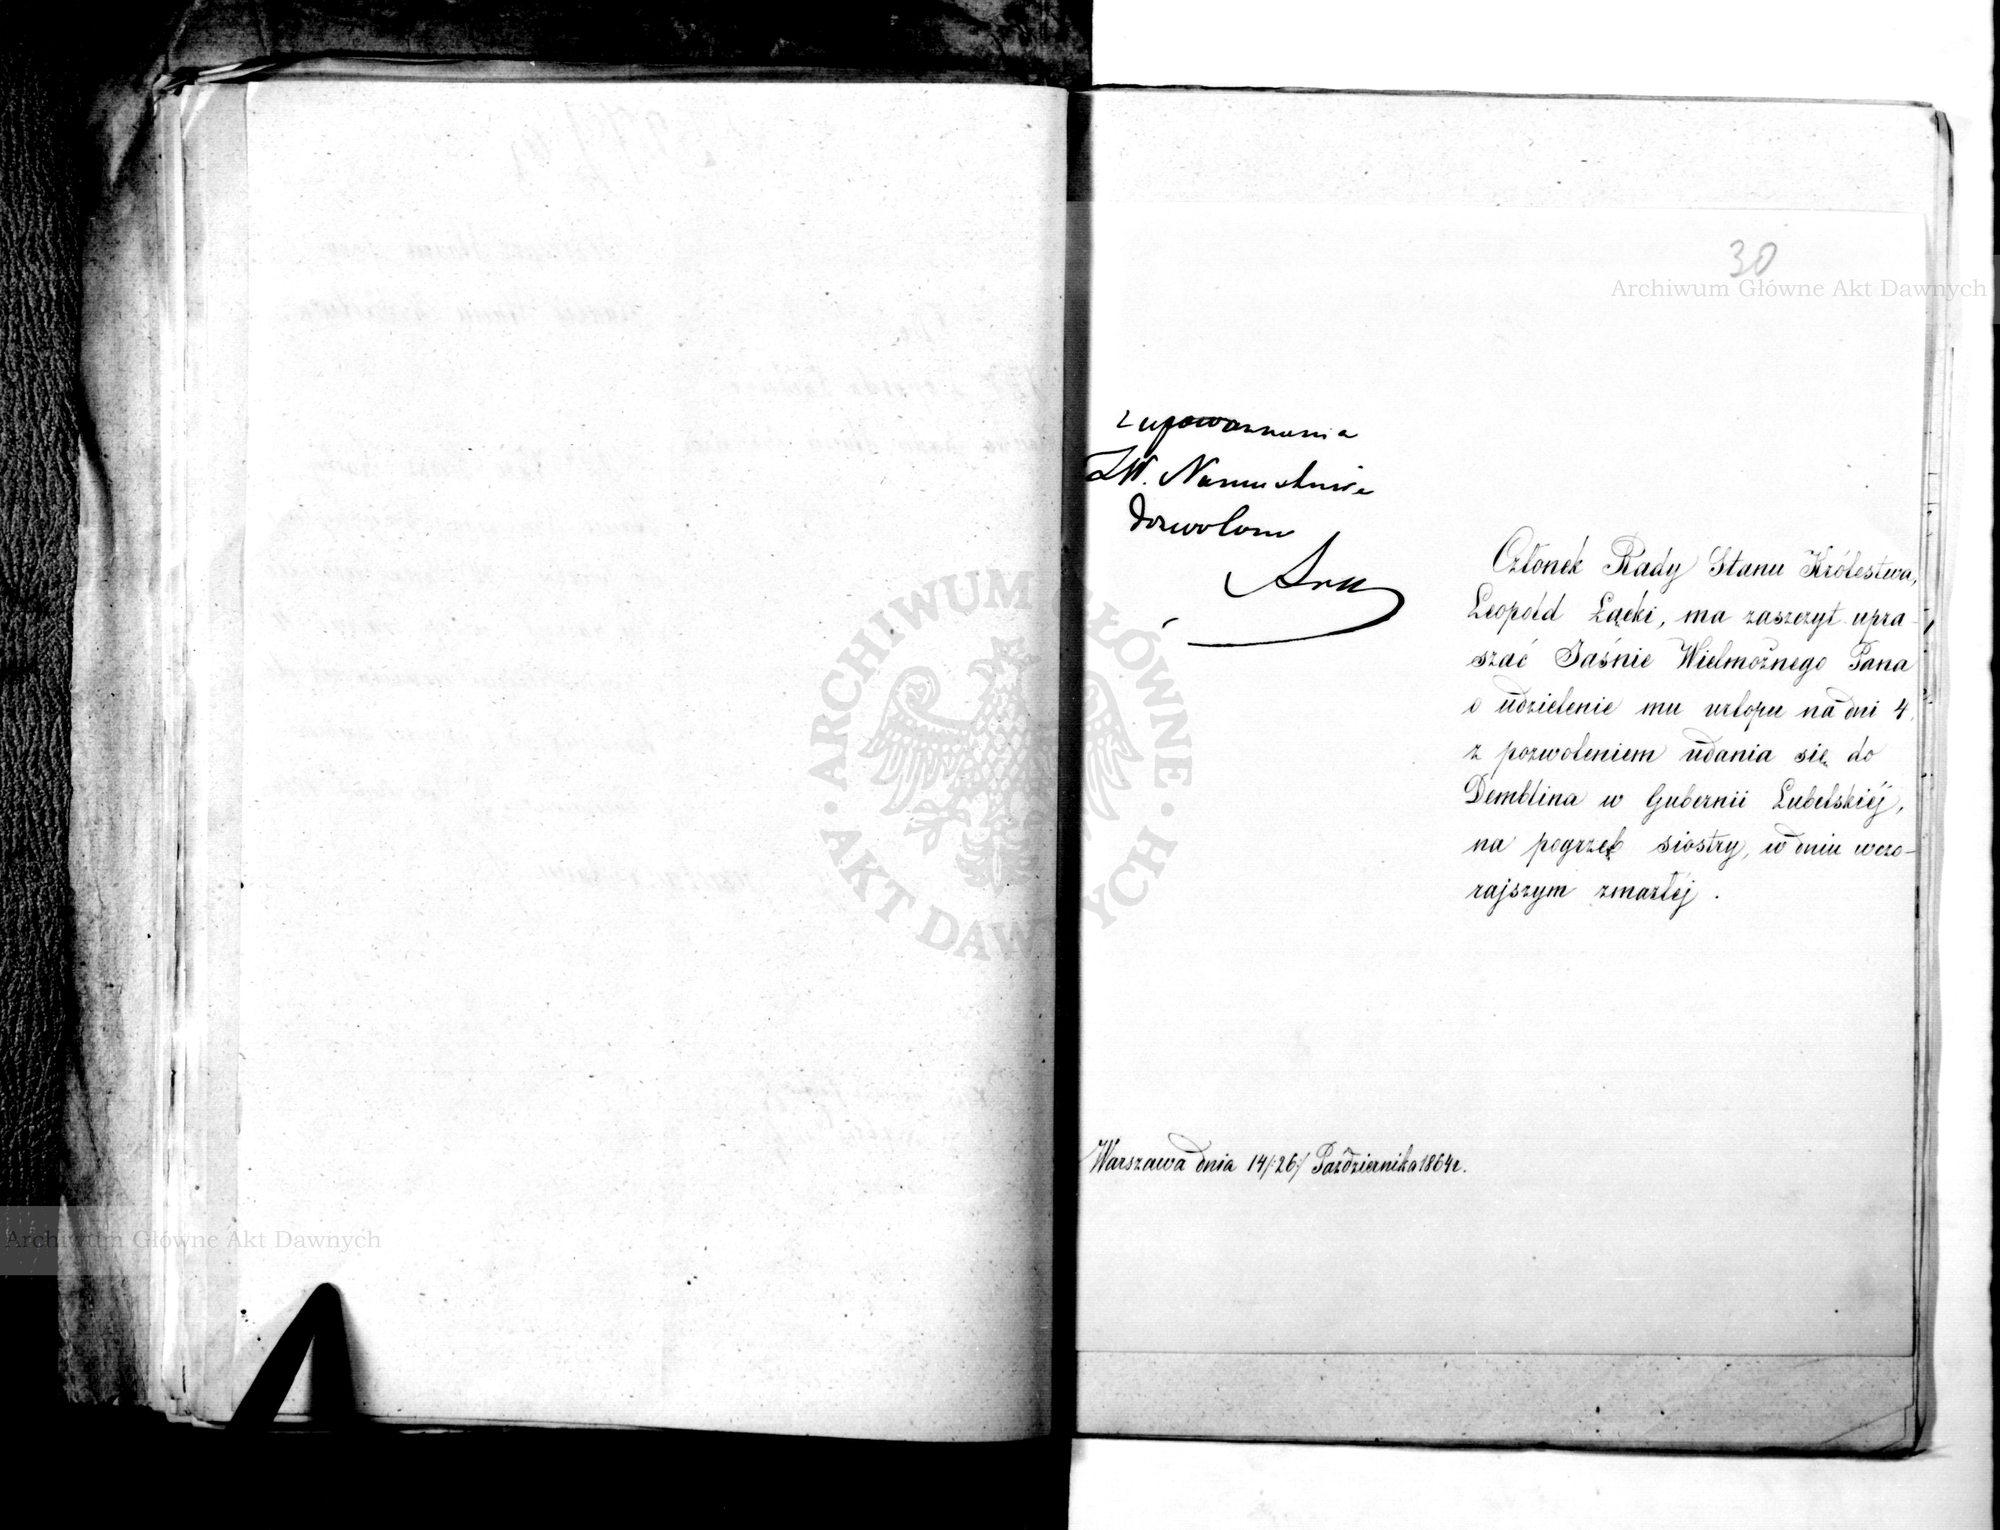 30
Archiwum Główne Akt Dawnych
z upoważnienia
JW. Namiestnika
dozwolam
Członek Rady Stanu Królestwa,
Leopold Łącki, ma zaszczyt upra-
szać Jaśnie Wielmożnego Pana
o udzielenie mu urlopu na dni 4,
z pozwoleniem udania się do
Demblina w Gubernii Lubelskiéj,
na pogrzeb siostry, w dniu wczo-
rajszym zmarłéj.
ARCHIWUM GŁÓWNE
AKT DAWNYCH
Warszawa dnia 14/:26:/ Października 1864 r.
Archiwum Główne Akt Dawnych